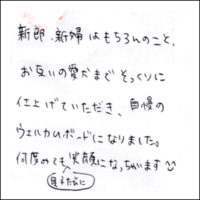 新郎、新婦はもちろんのこと、
お互いの愛犬までそっくりに
仕上げていただき、自慢の
ウェルカムボードになりました。
何度みても笑顔になっちゃいます
見るたびに